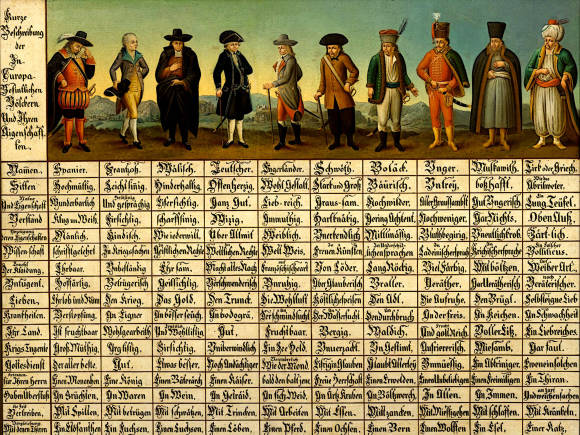 Kurze
Beschreibung
der
In
Europa
Befintlichen
Völckern
Und Ihren
Eigenschaff-
ten.
Namen. Spanier. Franzoß. Wälisch. Teutscher. Engerländer. Schwöth. Boläck. Unger. Muskawith. Tirk oder Griech.
Sitten Hochmüttig, Leichtsinig, Hinderhaltig, Offenherzig, Wohl Gestalt, Starck und Groß Bäurisch, Untrey, boßhafft, Abrilweter.
Und Eigenschaft Wunderbarlich Und gesprächig Eifersichtig, Ganz Gut, Lieb-reich, Graus-sam, Hochwilder, Aller Graussambst, Gut Ungerisch, Lung Teüfel,
Verstand Klug un Weiß, Firsichtig, scharffsinig, Wizig, Ammuthig, Hartknäkig, Gering Achtent, Nochweniger, Gar Nichts, Oben Auß,
Männlich, Kindisch, Wie iederwill, Über Allmit, Weiblich, Unerkendlich, Mittlmäsig, Bluthbegirig, Unentlichkrob, Zärt-lich,
Wissenschaft Schrifftgelehrt In Kriegssachen Geistlichen Rechte Weltlichen Rechte Welt Weis, Freuen Künsten sprachen Ladeinischersprach Krichischersprache Bollidicus,
Der Klaidung. Ehrbaar, Unbeständig Ehrsam, Macht alles Nach Französischeart Von Löder, Lang Röckig, Viel Färbig, Mit böltzen, Weiber Art,
Untugent, Hoffärtig, Betrügerisch Geissichtig, Verschwenderisch Unruhig, Aber Glauberisch Braller, Veräther, Garverätherisch Verätherischer,
Lieben, Ehrlob und Rüm Den Krieg, Das Gold, Den Trunck, Die Wohllust Köstlichespeisen Den Adl, Die Aufruhe, Den Brügl, Selbsteigne Lieb
Kranckheiten. Verstopfung, An Eigner An böser seüch, An bodogrä, Der schwindsucht Der Wassersucht Den durchbruch An der freis, An Keichen, An Schwachheit
Ihr Land. Ist fruchtbaar Wohlgearbeith Und Wohllistig Gut, Fruchtbaar, Bergig, Waldich, goltReich, Voller Eiß, Ein Liebreiches
Krigs Tugente Groß Müthig, Arg listig, Firsichtig, Uniberwindlich Ein See Held, Unverzackt, Un Gestimt, Aufrierisch, Miesamb, Gar faul,
Gottesdienst Der aller beste Gut, Etwas besser, Noch Andächtiger Wie der Mond Eifrig in Glauben Glaubt Allerley Unmüessig, Ein Abtriniger, Eweneinsolchen
für Ihren Herrn Einen Monarchen Einen König Einen Bäterärch Einen Käiser, bald den balt jene Freie Herrschaft Einen Erwelden, Einen Unbeliebigen Einen Freimilligen Ein Thiran,
Haben Überfluß An Früchten, An Waren An Wein, An Getraid, An fich Weid, An Ärtz Kruben An Böltzwerch, In Allen, An Immen, Und weichensachen
Die Zeit Vertreiben, Mit Spillen, Mit betrügen Mit schwätzen, Mit Trincken, Mit Arbeiten Mit Essen, Mit zancken, Mit Miessigehen Mit schlaffen, Mit Kränkeln,
Mit denen Thiren Ein Elofanthen Ein Fuchsen, Einen Luchsen, Einen Löben, Einen Pferd, Einen Ochsen, Einen Bern Einen Wolffen, Ein Esel, Einer Katz,